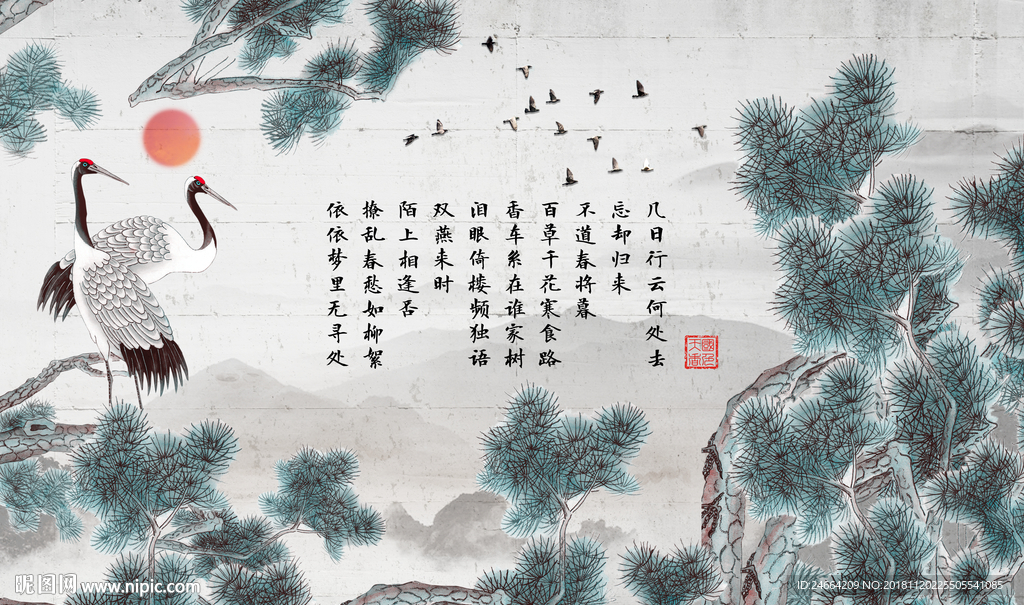 几日行云何处去
忘却归来
不道春将暮
百草千花寒食路
香车系在谁家树
泪眼倚楼频独语
双燕来时
陌上相逢否
撩乱春愁如柳絮
依依梦里无寻处
國色
天香
昵图网 www.nipic.com
ID:24664209 NO:20181120225505541085